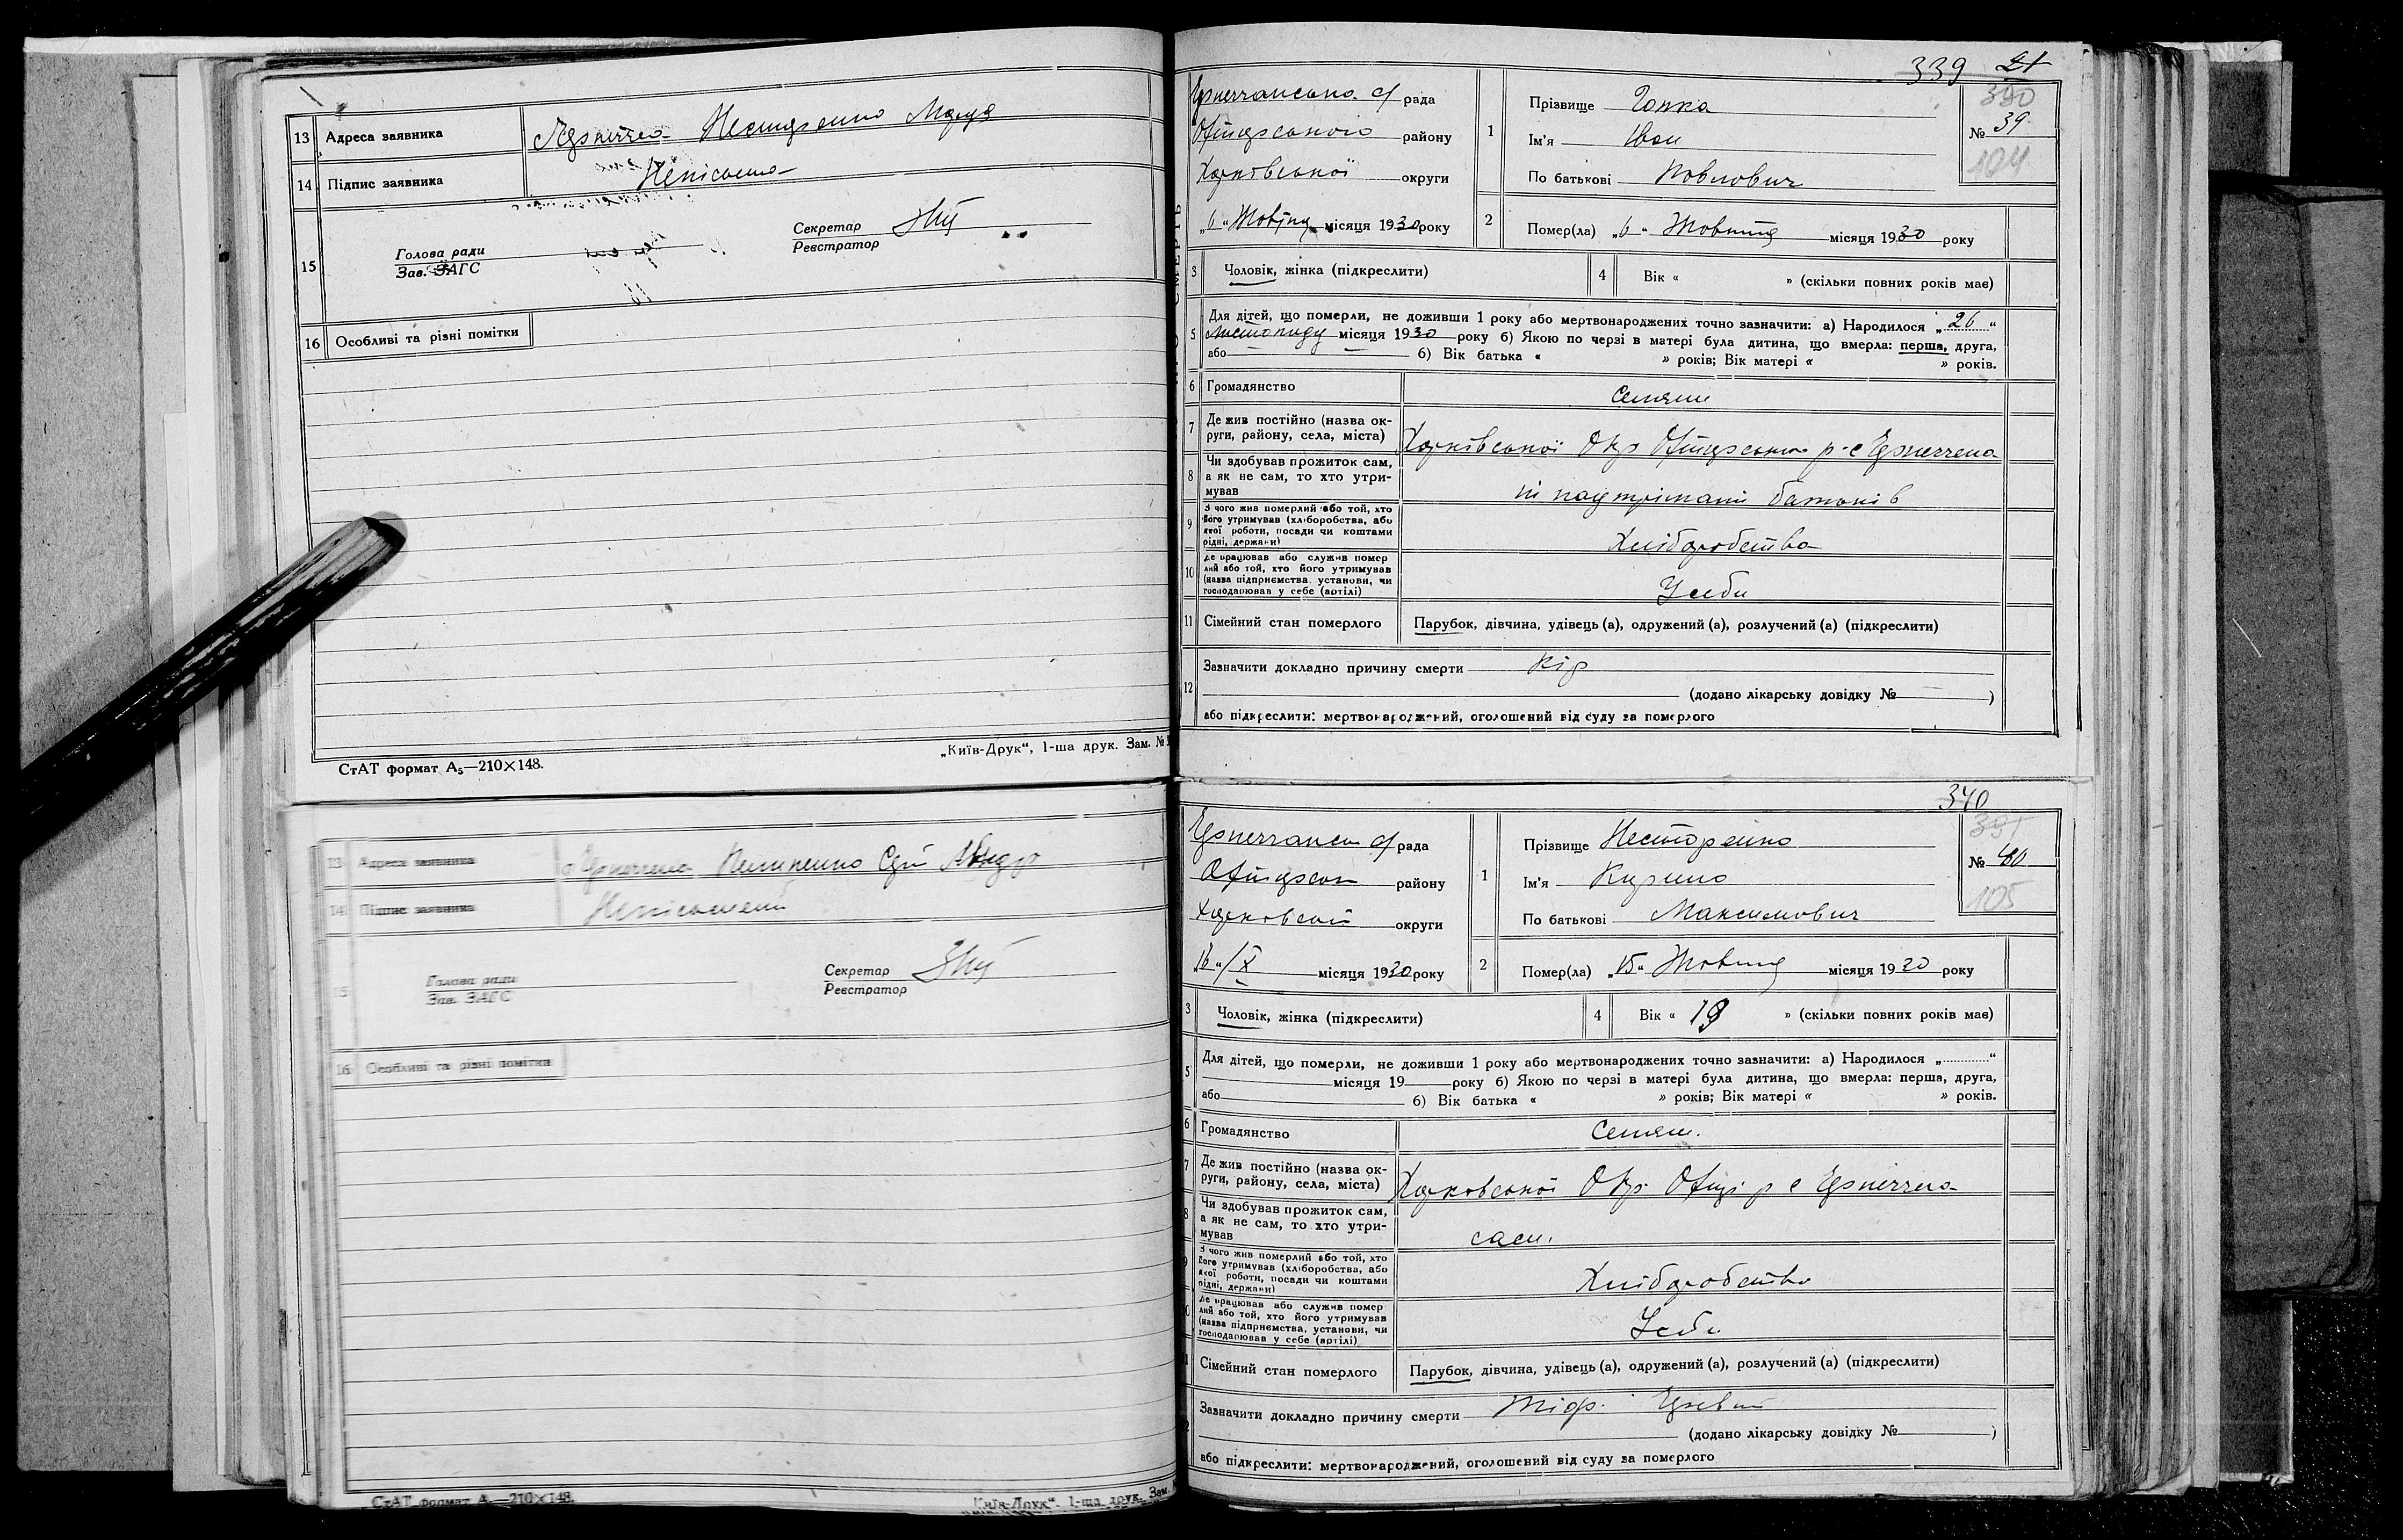 13 Адреса заявника
14 Підпис заявника
15 Голова ради
Зав. ЗАГС
Секретар
Реєстратор
16 Особливі та різні помітки
СтАТ формат А5—210×148.
„Київ-Друк“, 1-ша друк. Зам. №
13 Адреса заявника
14 Підпис заявника Неписьменний
15 Голова ради
Зав. ЗАГС
Секретар
Реєстратор
16 Особливі та різні помітки
СтАТ формат А5—210×148.
„Київ-Друк“, 1-ша друк. Зам.
339 21
рада
району
Харківської округи
„6“ місяця 1930 року
1 Прізвище
Ім'я Іван
По батькові Павлович
390
№ 39
104
2 Помер(ла) „6“ Жовтня місяця 1930 року
3 Чоловік, жінка (підкреслити)
4 Вік « » (скільки повних років має)
5 Для дітей, що померли, не доживши 1 року або мертвонароджених точно зазначити: а) Народилося „26“
листопаду місяця 1930 року б) Якою по черзі в матері була дитина, що вмерла: перша, друга,
або б) Вік батька « » років; Вік матері « » років.
6 Громадянство Селянин
7 Де жив постійно (назва ок-
руги, району, села, міста) Харківської Окр
8 Чи здобував прожиток сам,
а як не сам, то хто утри-
мував батьків
9 З чого жив померлий або той, хто
його утримував (хліборобства, або
якої роботи, посади чи коштами
рідні, держави) Хліборобства
10 Де працював або служив помер
лий або той, хто його утримував
(назва підприємства, установи, чи
господарював у себе (артілі) У себе
11 Сімейний стан померлого Парубок, дівчина, удівець (а), одружений (а), розлучений (а) (підкреслити)
12 Зазначити докладно причину смерти Кір
(додано лікарську довідку № )
або підкреслити: мертвонароджений, оголошений від суду за померлого
340
рада
району
округи
„16“ /X місяця 1930 року
1 Прізвище Несторенко
Ім'я Кирило
По батькові Максимович
391
№ 40
105
2 Помер(ла) „15“ Жовтня місяця 1930 року
3 Чоловік, жінка (підкреслити)
4 Вік « 19 » (скільки повних років має)
5 Для дітей, що померли, не доживши 1 року або мертвонароджених точно зазначити: а) Народилося „ “
місяця 19 року б) Якою по черзі в матері була дитина, що вмерла: перша, друга,
або б) Вік батька « » років; Вік матері « » років.
6 Громадянство Селян.
7 Де жив постійно (назва ок-
руги, району, села, міста) Харковської Окр.
8 Чи здобував прожиток сам,
а як не сам, то хто утри-
мував сам.
9 З чого жив померлий або той, хто
його утримував (хліборобства, або
якої роботи, посади чи коштами
рідні, держави) Хліборобства
10 Де працював або служив помер
лий або той, хто його утримував
(назва підприємства, установи, чи
господарював у себе (артілі) У себе
11 Сімейний стан померлого Парубок, дівчина, удівець (а), одружений (а), розлучений (а) (підкреслити)
12 Зазначити докладно причину смерти
(додано лікарську довідку № )
або підкреслити: мертвонароджений, оголошений від суду за померлого